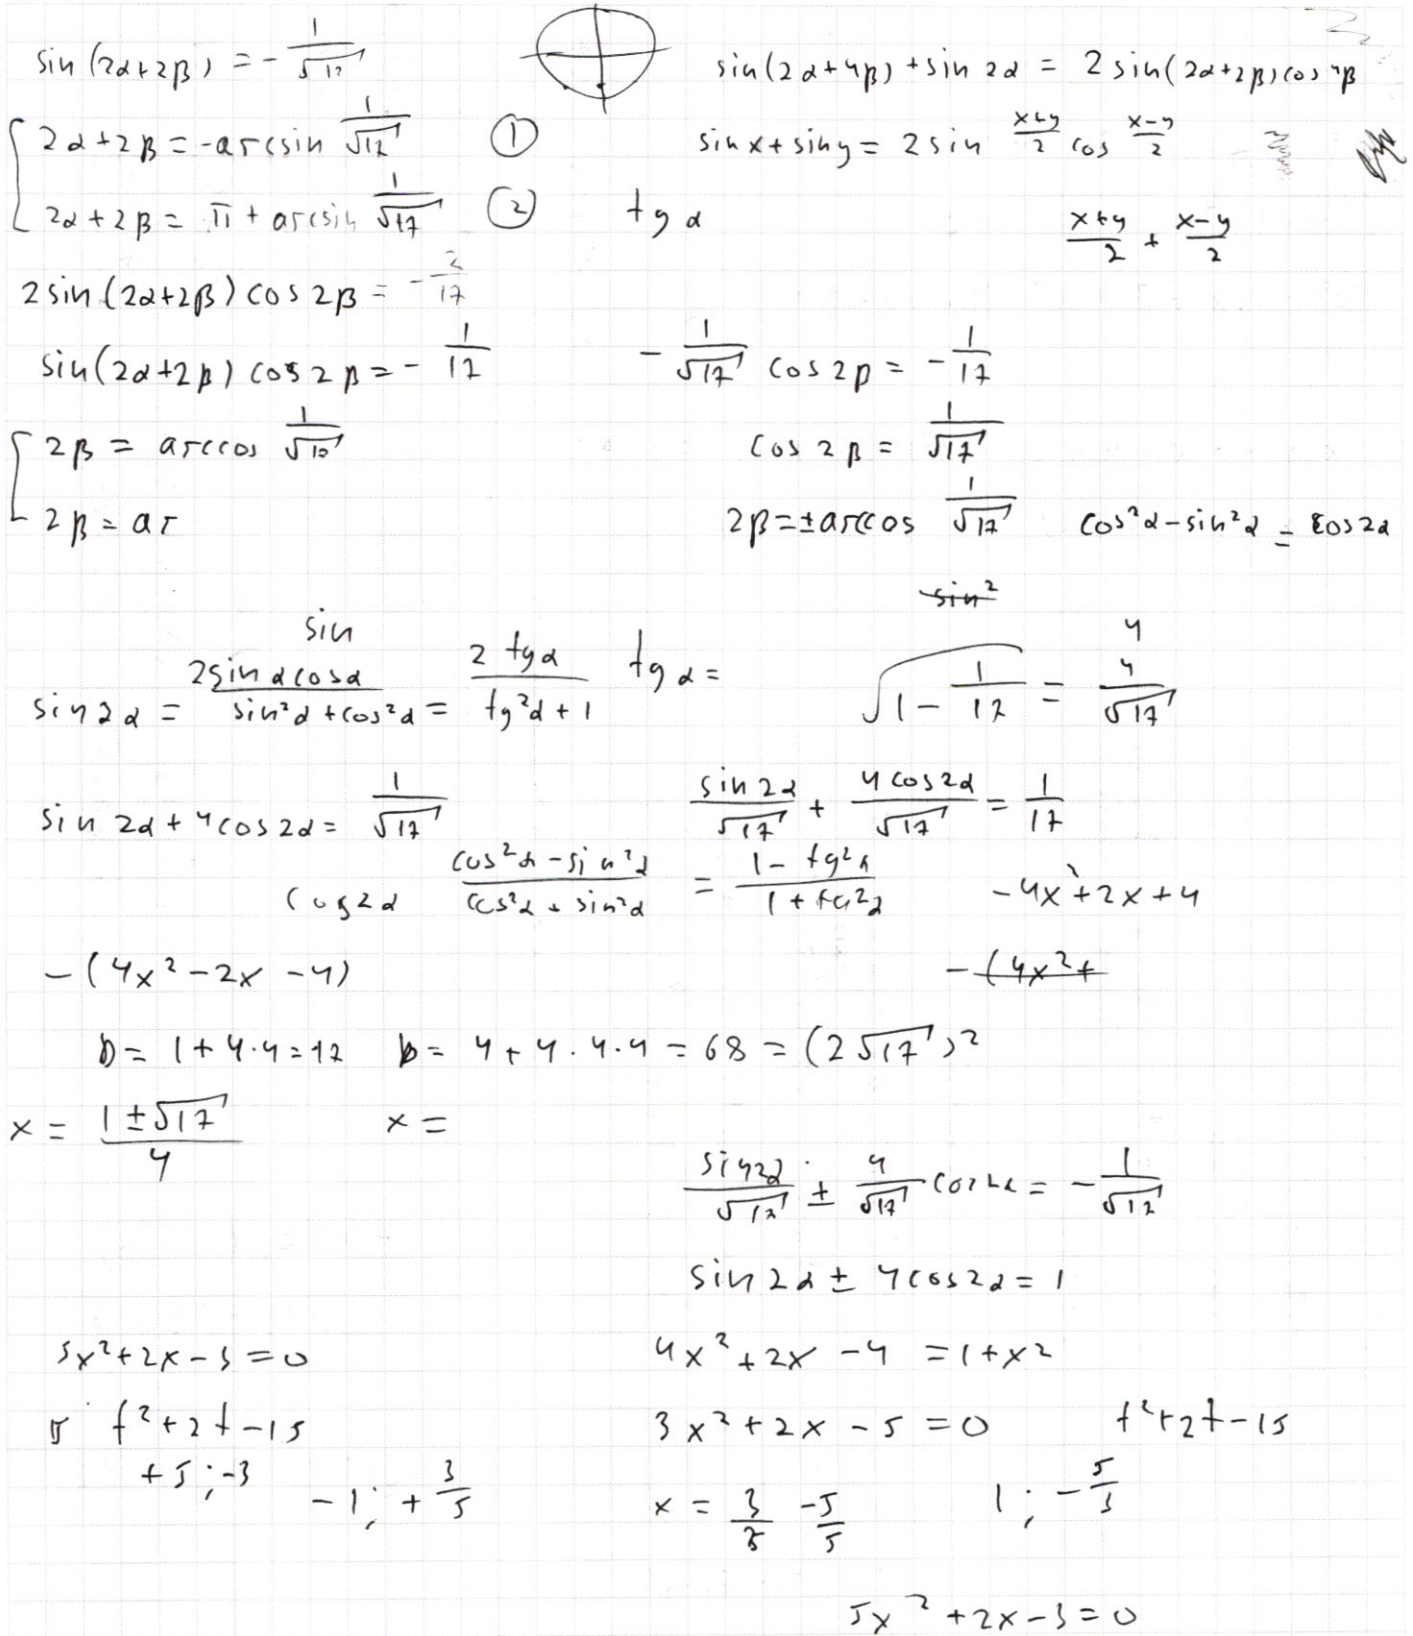 sin(2α+2β) = -1/√17
sin(2α+4β)+sin 2α = 2 sin(2α+2β) cos 4β
2α+2β = -arcsin 1/√17 ①
sin x + sin y = 2 sin (x+y)/2 cos (x-y)/2
2α+2β = π + arcsin 1/√17 ②
tg α
(x+y)/2 + (x-y)/2
2sin(2α+2β) cos 2β = -2/17
sin(2α+2β) cos 2β = -1/17
-1/√17 cos 2β = -1/17
2β = arccos 1/√17
cos 2β = 1/√17
2β = ar
2β = ±arccos 1/√17
cos²α - sin²α = cos 2α
sin²
sin
4
sin 2α = 2sin α cos α/(sin²α + cos²α) = 2 tg α/(tg²α + 1)
tg α =
√(1 - 1/17) = 4/√17
sin 2α + 4cos 2α = 1/√17
sin 2α/√17 + 4 cos 2α/√17 = 1/17
cos 2α (cos²α - sin²α)/(cos²α + sin²α) = (1 - tg²α)/(1 + tg²α)
-4x²+2x+4
-(4x² - 2x - 4)
-(4x²+
D = 1+4·4 = 17
D = 4+4·4·4 = 68 = (2√17)²
x = (1±√17)/4
x =
sin 2α/√17 ± 4/√17 cos 2α = -1/√17
sin 2α ± 4cos 2α = 1
5x²+2x-3 = 0
4x²+2x-4 = 1+x²
t²+2t-15
3x²+2x-5 = 0
t²+2t-15
+5; -3
-1; +3/5
x = 3/3 -5/5
1; -5/3
5x²+2x-3 = 0